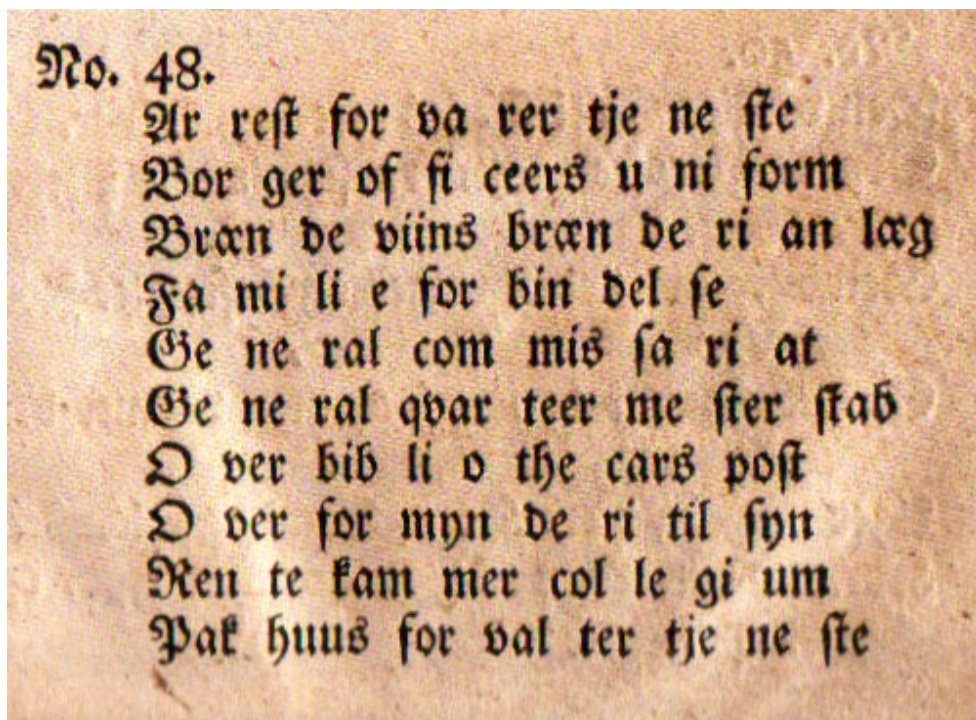 No. 48.
Ar reſt for va rer tje ne ſte
Bor ger of fi ceers u ni form
Bræn de viins bræn de ri an læg
Fa mi li e for bin del ſe
Ge ne ral com mis ſa ri at
Ge ne ral qvar teer me ſter ſkab
O ver bib li o the cars poſt
O ver for myn de ri til ſyn
Ren te kam mer col le gi um
Pak huus for val ter tje ne ſte